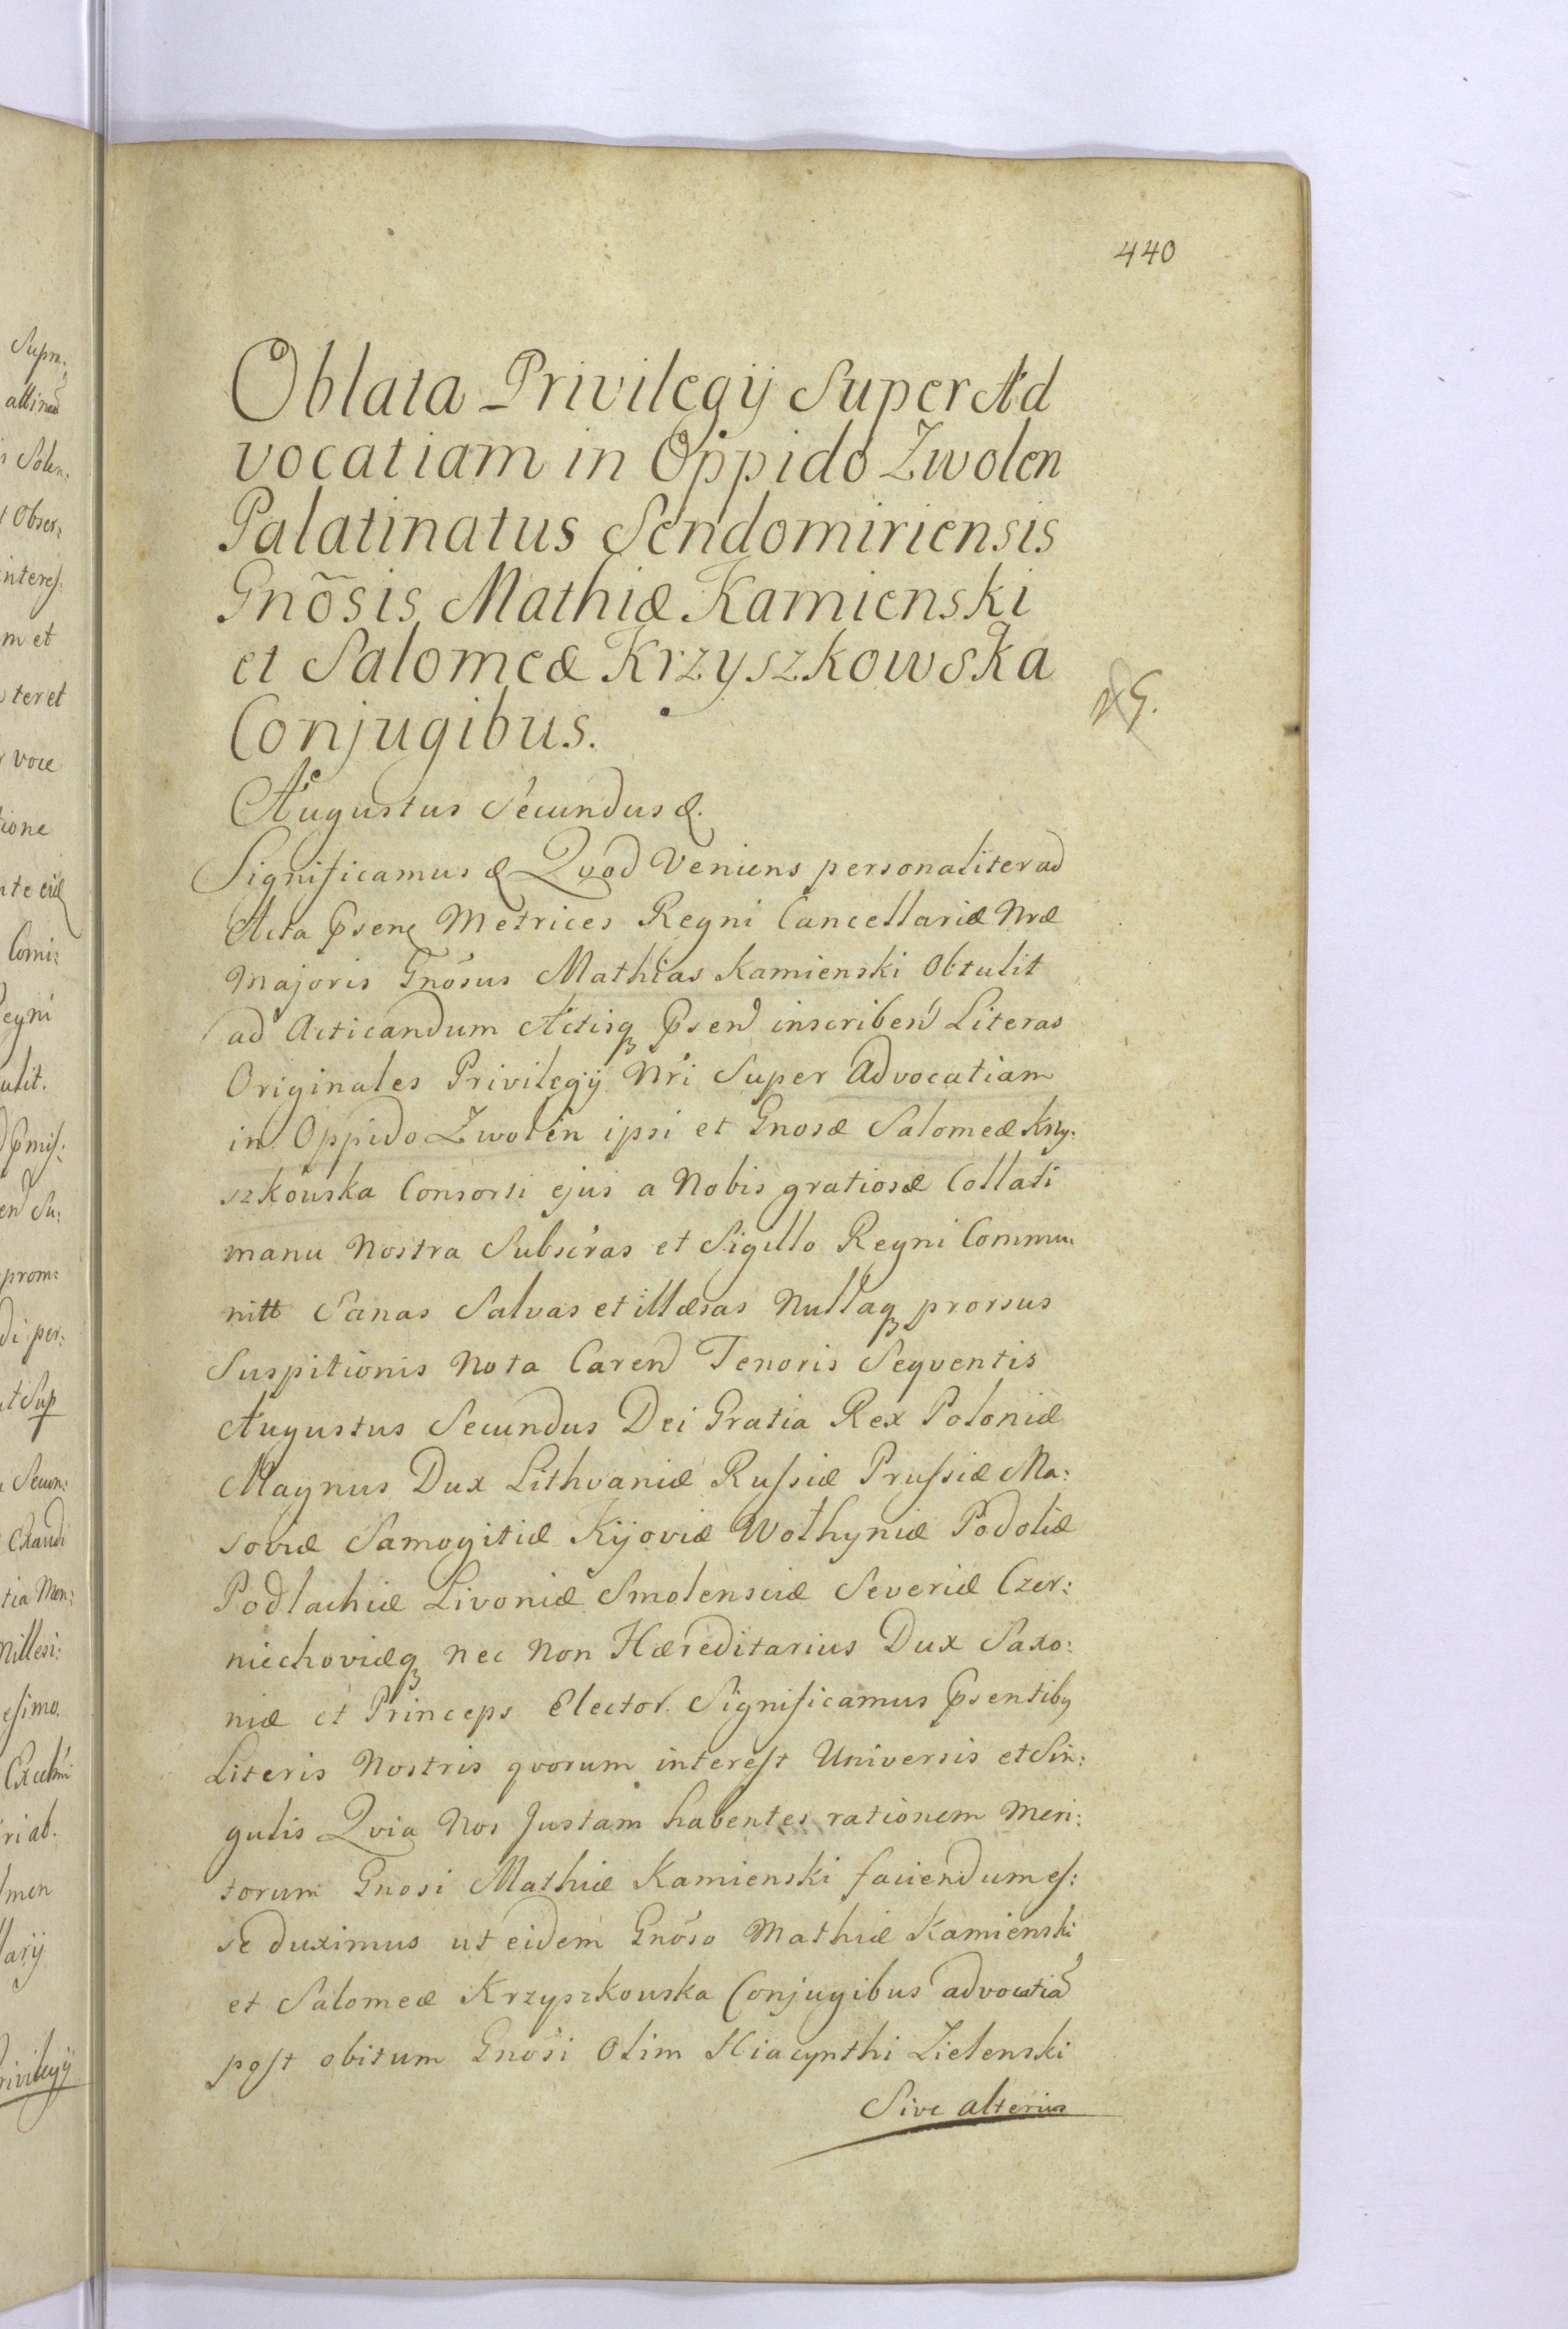 440
Oblata Privilegÿ Super Ad
vocatiam in Oppido Zwolen
Palatinatus Sendomiriensis
Gnõsis Mathiæ Kamienski
et Salomeæ Krzyszkowska
Conjugibus.
Augustus Secundus &.
Significamus & Qvod Veniens personaliter ad
Acta Metrices Regni Cancellariæ Nræ
Majoris Gnõsus Mathias Kamienski Obtulit
ad Acticandum Actisq inscriben Literas
Originales Privilegÿ Nri Super Advocatiam
in Oppido Zwolen ipsi et Gnosæ Salomeæ Krzy:
szkowska Consorti ejus a Nobis gratiosæ Collati
manu Nostra Subscras et Sigillo Regni Commu:
nitt Sanas Salvas et illæsas Nullaq prorsus
Suspitionis Nota Caren Tenoris Seqventis
Augustus Secundus Dei Gratia Rex Poloniæ
Magnus Dux Lithvaniæ Russiæ Prussiæ Ma:
soviæ Samogitiæ Kijoviæ Wolhyniæ Podoliæ
Podlachiæ Livoniæ Smolensciæ Severiæ Czer:
niechoviæq nec Non Hæreditarius Dux Saxo:
niæ et Princeps Elector Significamus Psentibq
Literis Nostris qvorum interest Universis et Sin:
gulis Qvia Nos Justam habentes rationem Meri:
torum Gnosi Mathiæ Kamienski faciendum es:
se duximus ut eidem Gnõso Mathiæ Kamienski
et Salomeæ Krzyszkowska Conjugibus advocatiã
post obitum Gnõsi Olim Hiacynthi Zielenski
Sive alterius